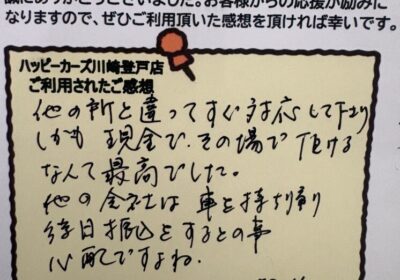 誠にありがとうございました。お客様からの応援が励みに
なりますので、ぜひご利用頂いた感想を頂ければ幸いです。
ハッピーカーズ川崎登戸店
ご利用されたご感想
他の所と違ってすぐ対応して下さり
しかも現金で、その場で頂ける
なんて最高でした。
他の会社は車を持ち帰り
後日振込をするとの事
心配ですよね。